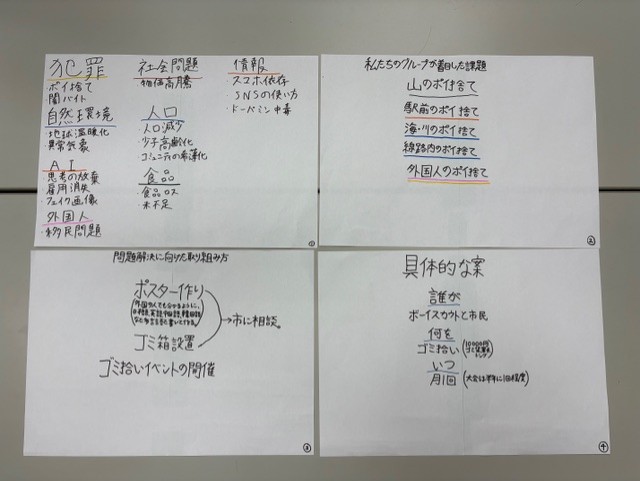 犯罪
・ポイ捨て
・闇バイト
自然環境
・地球温暖化
・異常気象
AI
・思考の放棄
・雇用消失
・フェイク画像
外国人
・移民問題
社会問題
・物価高騰
人口
・人口減少
・少子高齢化
・コミュニティの希薄化
食品
・食品ロス
・米不足
情報
・スマホ依存
・SNSの使い方
・ドーパミン中毒
①
私たちのグループが着目した課題
山のポイ捨て
駅前のポイ捨て
海・川のポイ捨て
線路内のポイ捨て
外国人のポイ捨て
②
問題解決に向けた取り組み方
ポスター作り
(外国の人でも分かるように、
日本語、英語、中国語、韓国語
など
ゴミ箱設置
→市に相談。
ゴミ拾いイベントの開催
③
具体的な案
誰が
ボーイスカウトと市民
何を
ゴミ拾い
いつ
月1回 (大会は半年に1回程度)
④